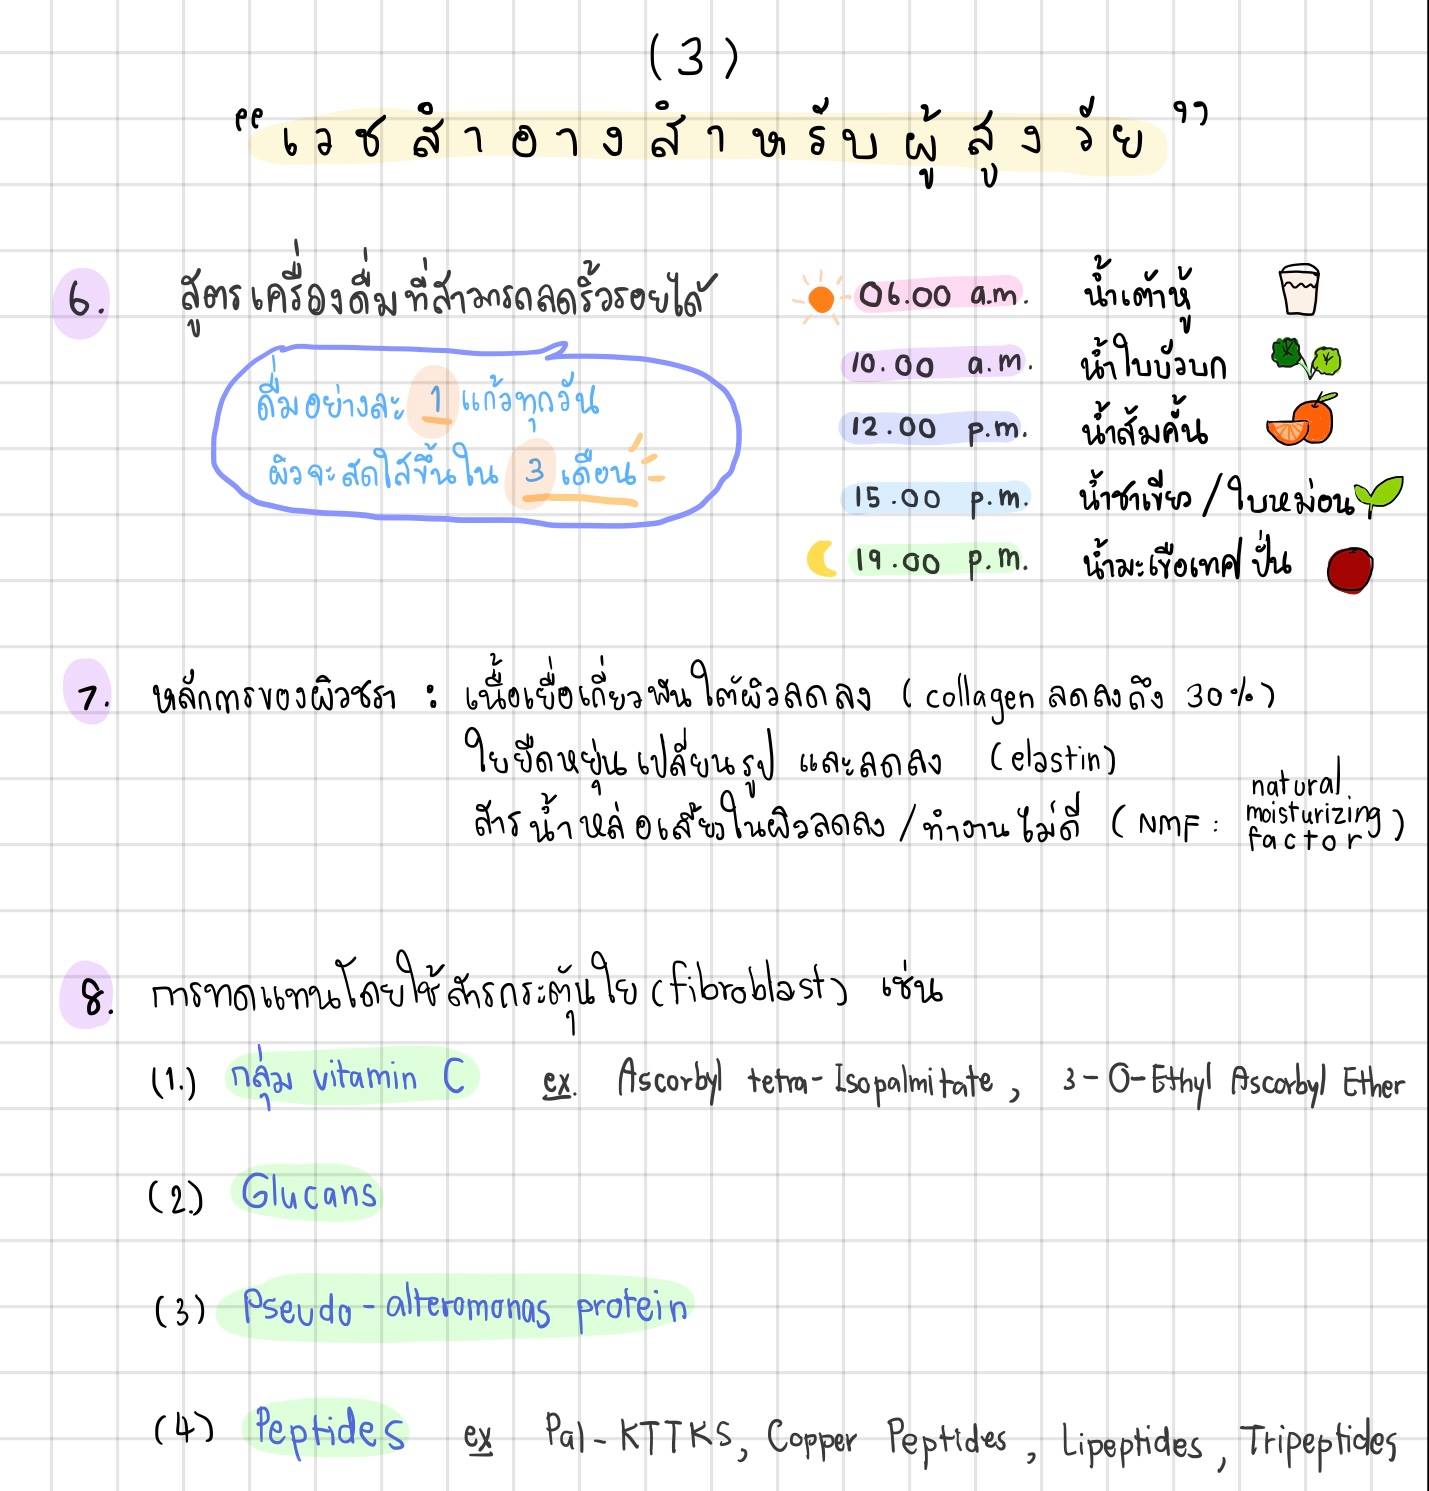 (3)
"เวชสำอางสำหรับผู้สูงวัย"
6. สูตรเครื่องดื่มที่สามารถลดริ้วรอยได้
ดื่มอย่างละ 1 แก้วทุกวัน
ผิวจะสดใสขึ้นใน 3 เดือน
06.00 a.m. น้ำเต้าหู้
10.00 a.m. น้ำใบบัวบก
12.00 p.m. น้ำส้มคั้น
15.00 p.m. น้ำชาเขียว / ใบหม่อน
19.00 p.m. น้ำมะเขือเทศปั่น
7. หลักการของผิวชรา : เนื้อเยื่อเกี่ยวพันใต้ผิวลดลง (collagen ลดลงถึง 30%)
ใยยืดหยุ่นเปลี่ยนรูป และลดลง (elastin)
สารน้ำหล่อเลี้ยงในผิวลดลง / ทำงานไม่ดี (NMF : natural moisturizing factor)
8. การทดแทนโดยใช้สารกระตุ้นใย (fibroblast) เช่น
(1.) กลุ่ม vitamin C ex. Ascorbyl tetra-Isopalmitate, 3-O-Ethyl Ascorbyl Ether
(2.) Glucans
(3) Pseudo-alteromonas protein
(4) Peptides ex Pal-KTTKS, Copper Peptides, Lipeptides, Tripeptides